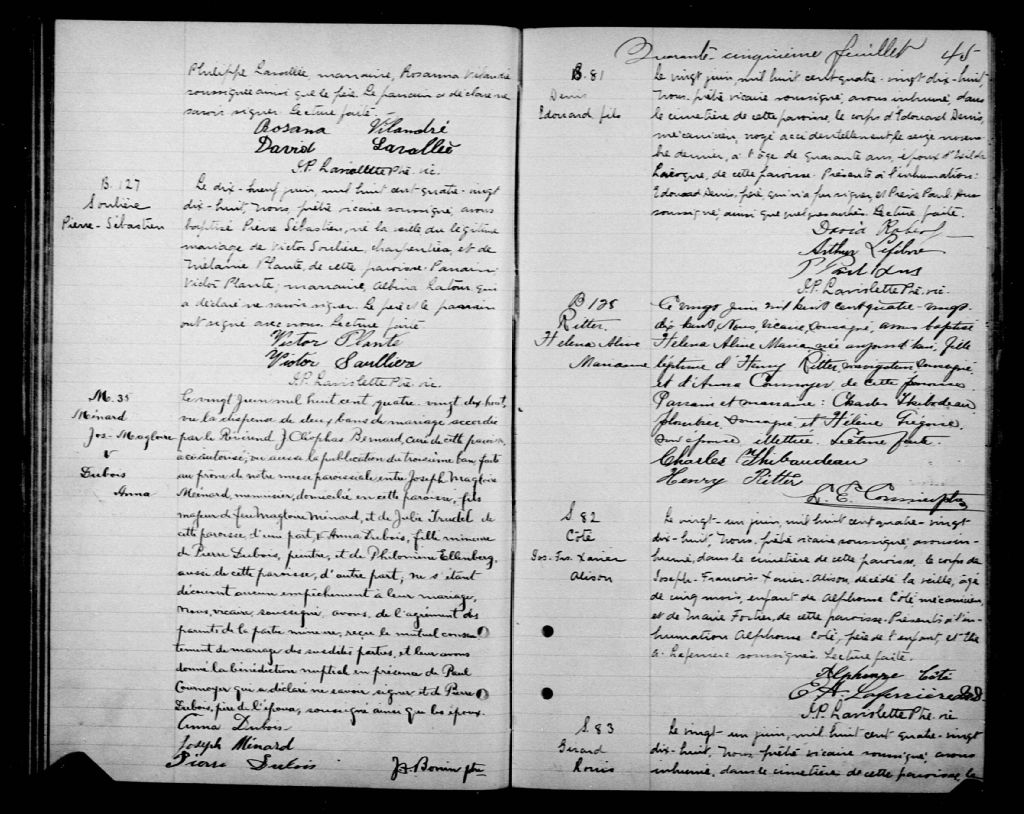 Philippe Lavallée, marraine, Rosanna Vilandré
soussignée ainsi que le père. Le parrain a déclaré ne
savoir signer. Lecture faite.
Rosana Vilandré
David Lavallée
J.P. Laviolette Ptre. vic.
B. 127
Soulière
Pierre-Sébastien
Le dix-neuf juin, mil huit cent quatre-vingt
dix-huit, Nous, prêtre vicaire soussigné, avons
baptisé Pierre Sébastien, né la veille du légitime
mariage de Victor Soulière, charpentier, et de
Mélanie Plante, de cette paroisse. Parrain:
Victor Plante; marraine, Albina Latour, qui
a déclaré ne savoir signer. Le père et le parrain
ont signé avec nous. Lecture faite
Victor Plante
Victor Saulliere
J.P. Laviolette Ptre. vic.
M. 35
Ménard
Jos-Magloire
&
Dubois
Anna
Le vingt Juin mil huit cent quatre vingt dix huit,
vu la dispense de deux bans de mariage accordée
par le Révérend J. Cléophas Bernard, curé de cette paroisse,
à ce autorisé; vu aussi la publication du troisième ban, faite
au prône de notre messe paroissiale entre Joseph Magloire
Ménard, menuisier, domicilié en cette paroisse, fils
majeur de feu Magloire Ménard, et de Julie Trudel de
cette paroisse, d'une part, & Anna Dubois, fille mineure
de Pierre Dubois, peintre, et de Philomène Ellenberg,
aussi de cette paroisse, d'autre part; ne s'étant
découvert aucun empêchement à leur mariage,
Nous, vicaire, soussigné, avons, de l'agrément des
parents de la partie mineure, reçu le mutuel consen
tement de mariage des susdites parties, et leur avons
donné la bénédiction nuptiale en présence de Paul
Cournoyer qui a déclaré ne savoir signer et de Pierre
Dubois, père de l'épouse, soussigné ainsi que les époux.
Anna Dubois
Joseph Ménard
Pierre Dubois J. Bonin ptre
Quarante-cinquième feuillet 45
B. 81
Denis
Edouard fils
Le vingt juin, mil huit cent quatre-vingt dix-huit,
Nous, prêtre vicaire soussigné, avons inhumé, dans
le cimetière de cette paroisse, le corps d'Edouard Denis,
mécanicien, noyé accidentellement le seize novem
bre dernier, à l'âge de quarante ans, époux d'Exilda
de cette paroisse. Présents à l'inhumation:
Edouard Denis, père, qui n'a pu signer, et Pierre Paul
soussigné, ainsi que quelques autres. Lecture faite.
David Robert
Arthur Lefebvre
P Paul
J.P. Laviolette Ptre. vic.
B 128
Ritter
Helena Aline
Marianne
Ce vingt Juin mil huit cent quatre-vingt
dix huit, Nous, vicaire, soussigné, avons baptisé
Helena Aline Maria, née aujourd'hui, fille
légitime d'Henry Ritter, navigateur, soussigné,
et d'Anna Cournoyer, de cette paroisse.
Parrain et marraine: Charles Thibodeau
plombier, soussigné, et Hélène Grégoire,
son épouse, illettrée. Lecture faite.
Charles Thibaudeau
Henry Ritter
S 82
Côté
Jos-Frs. Xavier
Alison
Le vingt-un juin, mil huit cent quatre-vingt
dix-huit, Nous, prêtre vicaire soussigné, avons in-
humé, dans le cimetière de cette paroisse, le corps de
Joseph-François-Xavier-Alison, décédé la veille, âgé
de cinq mois, enfant de Alphonse Côté, mécanicien,
et de Marie Fortier, de cette paroisse. Présents à l'in-
humation Alphonse Coté, père de l'enfant, et
soussignés. Lecture faite.
Alphonze Côté
J.P. Laviolette Ptre. vic
S. 83
Gérard
Rouis
Le vingt-un juin, mil huit cent quatre-vingt
dix-huit, Nous, prêtre vicaire soussigné, avons
inhumé, dans le cimetière de cette paroisse, le